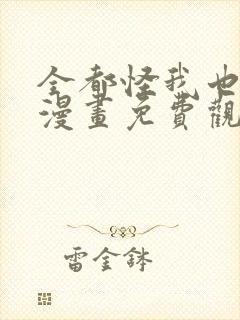 全都怪我也
漫畫免費觀
雷金鉢